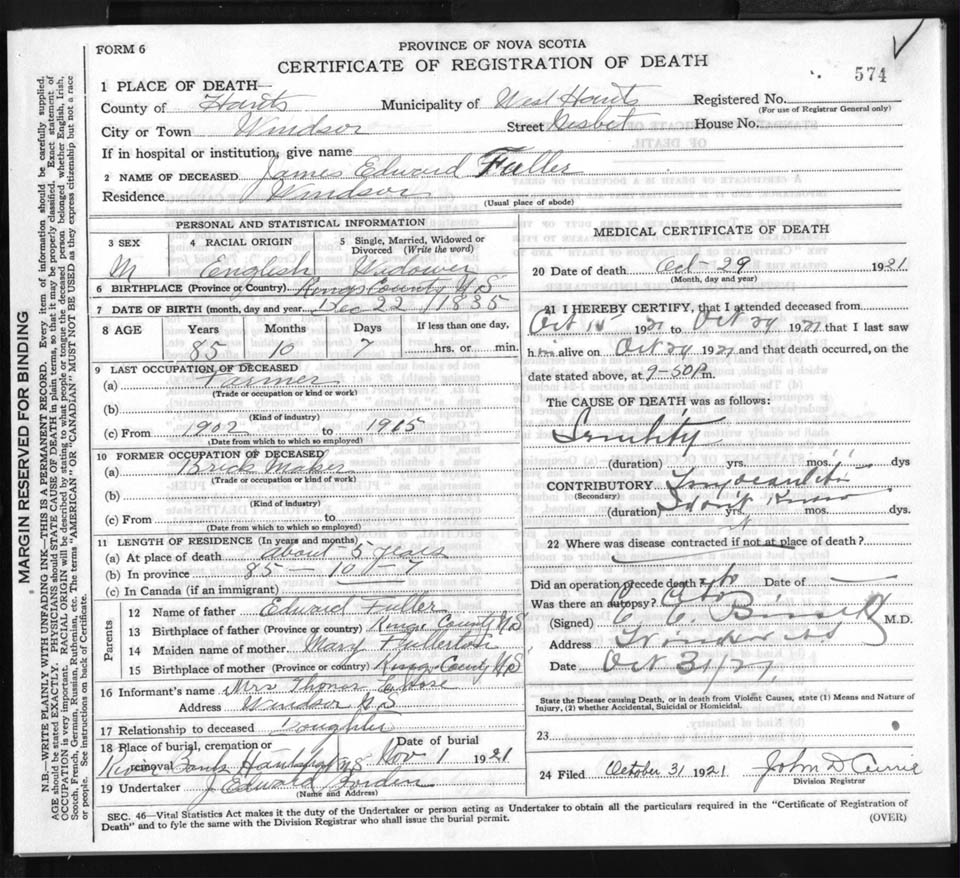 FORM 6
PROVINCE OF NOVA SCOTIA
CERTIFICATE OF REGISTRATION OF DEATH
574
1 PLACE OF DEATH—
County of Hants Municipality of West Hants Registered No.
(For use of Registrar General only)
City or Town Windsor Street Nesbit House No.
If in hospital or institution, give name
2 NAME OF DECEASED James Edward Fuller
Residence Windsor
(Usual place of abode)
PERSONAL AND STATISTICAL INFORMATION
3 SEX 4 RACIAL ORIGIN 5 Single, Married, Widowed or Divorced (Write the word)
M English Widower
6 BIRTHPLACE (Province or Country) Kings County N S
7 DATE OF BIRTH (month, day and year) Dec 22 1835
8 AGE Years Months Days If less than one day,
85 10 7 hrs. or min.
9 LAST OCCUPATION OF DECEASED
(a) Farmer
(Trade or occupation or kind of work)
(b)
(Kind of industry)
(c) From 1902 to 1915
(Date from which to which so employed)
10 FORMER OCCUPATION OF DECEASED
(a) Brick Maker
(Trade or occupation or kind of work)
(b)
(Kind of industry)
(c) From to
(Date from which to which so employed)
11 LENGTH OF RESIDENCE (In years and months)
(a) At place of death about 5 years
(b) In province 85 — 10 — 7
(c) In Canada (if an immigrant)
Parents
12 Name of father Edward Fuller
13 Birthplace of father (Province or country) Kings County N S
14 Maiden name of mother Mary Fullerton
15 Birthplace of mother (Province or country) Kings County N S
16 Informant's name Mrs Thomas
Address Windsor N S
17 Relationship to deceased Daughter
18 Place of burial, cremation or removal Date of burial
N S Nov 1 1921
19 Undertaker J Edward
(Name and Address)
MEDICAL CERTIFICATE OF DEATH
20 Date of death Oct - 29 1921
(Month, day and year)
21 I HEREBY CERTIFY, that I attended deceased from
Oct 1921 to Oct 29 1921 that I last saw
him alive on Oct 29 1921 and that death occurred, on the
date stated above, at 9-50 P.m.
The CAUSE OF DEATH was as follows:
Senility
(duration) yrs. mos. dys
CONTRIBUTORY Myocarditis
(Secondary)
(duration) Don't Know yrs. mos. dys.
22 Where was disease contracted if not at place of death?
Did an operation precede death? No Date of
Was there an autopsy? No
(Signed) M.D.
Address Windsor N S
Date Oct 31/21
State the Disease causing Death, or in death from Violent Causes, state (1) Means and Nature of Injury, (2) whether Accidental, Suicidal or Homicidal.
23
24 Filed October 31 1921 John D Currie
Division Registrar
SEC. 46—Vital Statistics Act makes it the duty of the Undertaker or person acting as Undertaker to obtain all the particulars required in the "Certificate of Registration of
Death" and to fyle the same with the Division Registrar who shall issue the burial permit.
(OVER)
MARGIN RESERVED FOR BINDING
N.B.—WRITE PLAINLY WITH UNFADING INK—THIS IS A PERMANENT RECORD. Every item of information should be carefully supplied.
AGE should be stated EXACTLY. PHYSICIANS should STATE CAUSE OF DEATH in plain terms, so that it may be properly classified. Exact statement of
OCCUPATION is very important. RACIAL ORIGIN will be described by stating to what people or tongue the deceased person belonged whether English, Irish,
Scotch, French, German, Russian, Ruthenian, etc. The terms "AMERICAN" OR "CANADIAN" MUST NOT BE USED as they express citizenship but not a race
or people. See instructions on back of Certificate.